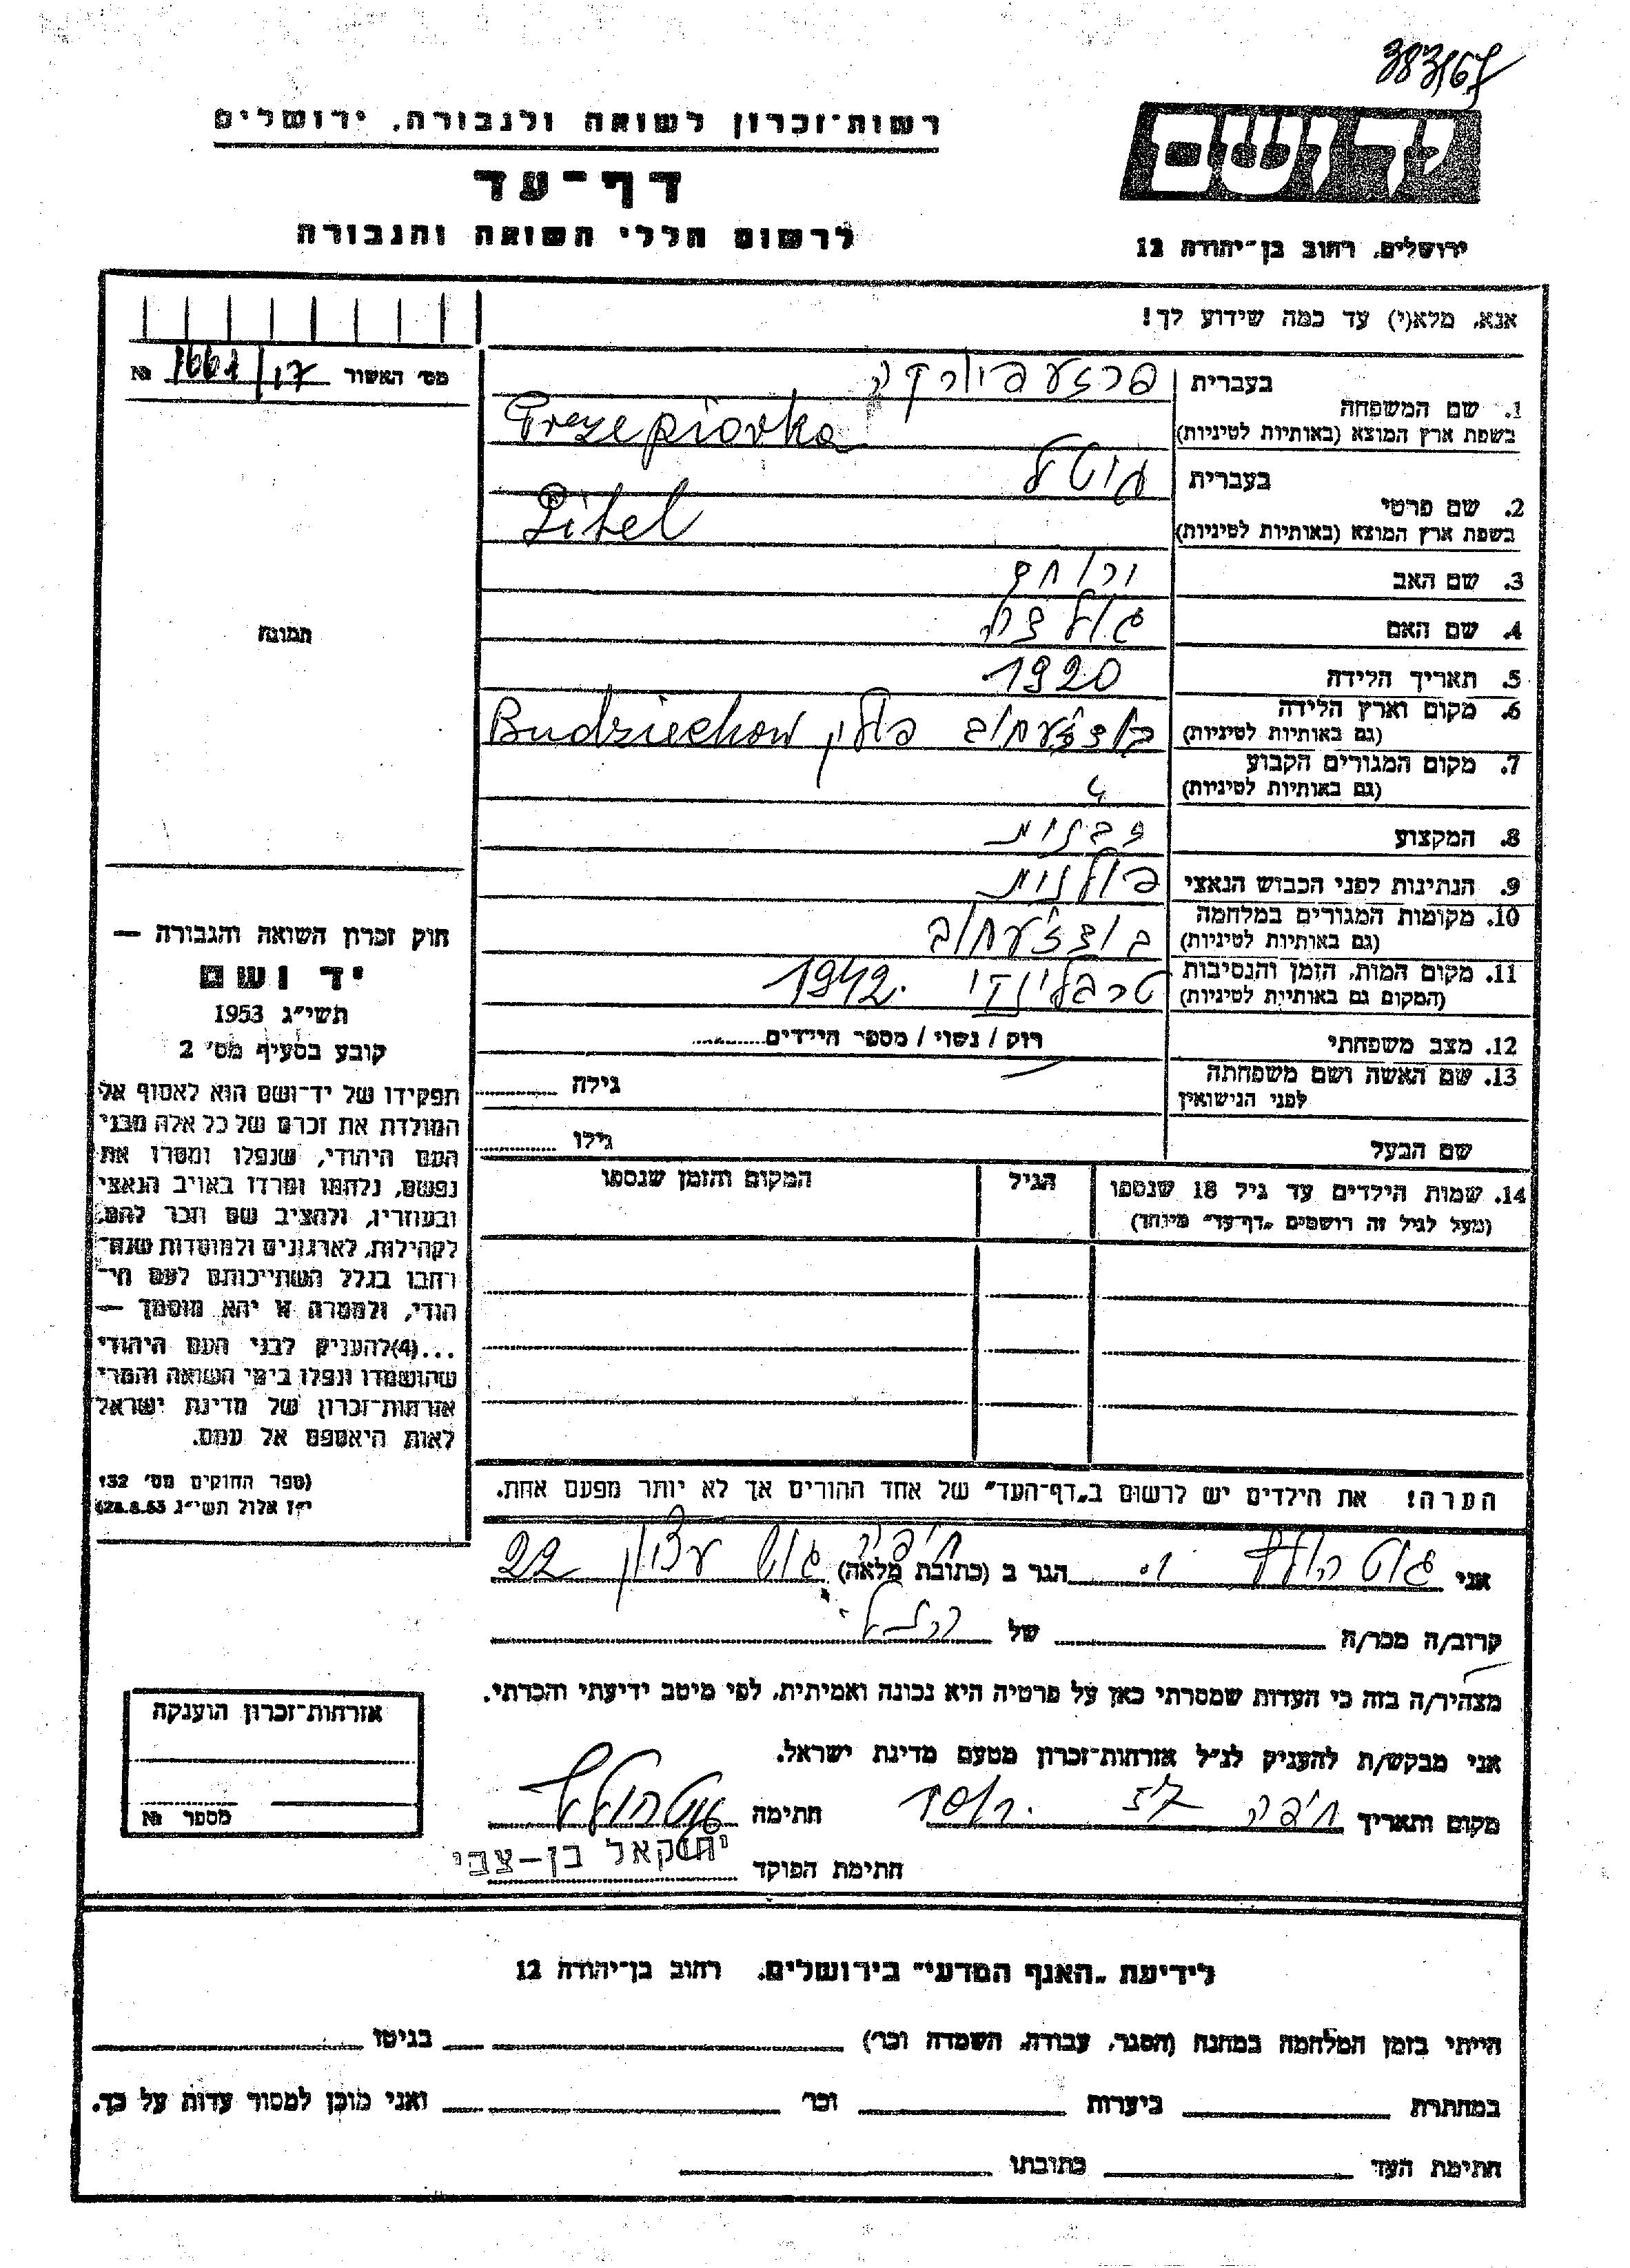 383/67
רשות-זכרון לשואה ולגבורה, ירושלים
יד ושם
דף-עד
לרשום חללי השואה והגבורה
ירושלים, רחוב בן-יהודה 12
אנא, מלא(י) עד כמה שידוע לך!
מס׳ האשור 17/1661 №
בעברית פרזעפיורקה
1. שם המשפחה
בשפת ארץ המוצא (באותיות לטיניות) Przepiorka
בעברית גיטל
2. שם פרטי
בשפת ארץ המוצא (באותיות לטיניות) Gitel
3. שם האב
4. שם האם גולדה
5. תאריך הלידה 1920
6. מקום וארץ הלידה
(גם באותיות לטיניות) פולין Budziechow
7. מקום המגורים הקבוע
(גם באותיות לטיניות) "
8. המקצוע
9. הנתינות לפני הכבוש הנאצי פולנית
10. מקומות המגורים במלחמה
(גם באותיות לטיניות)
11. מקום המות, הזמן והנסיבות
(המקום גם באותיות לטיניות) טרבלינקי 1942.
12. מצב משפחתי רוק / נשוי / מספר הילדים
13. שם האשה ושם משפחתה גילה
לפני הנישואין
שם הבעל גילו
14. שמות הילדים עד גיל 18 שנספו הגיל המקום והזמן שנספו
(מעל לגיל זה רושמים „דף-עד" מיוחד)
הערה! את הילדים יש לרשום ב„דף-העד" של אחד ההורים אך לא יותר מפעם אחת.
תמונה
חוק זכרון השואה והגבורה —
יד ושם
תשי״ג 1953
קובע בסעיף מס׳ 2
תפקידו של יד-ושם הוא לאסוף אל
המולדת את זכרם של כל אלה מבני
העם היהודי, שנפלו ומסרו את
נפשם, נלחמו ומרדו באויב הנאצי
ובעוזריו, ולהציב שם וזכר להם,
לקהילות, לארגונים ולמוסדות שנח־
רבו בגלל השתייכותם לעם הי־
הודי, ולמטרה זו יהא מוסמך —
...(4)להעניק לבני העם היהודי
שהושמדו ונפלו בימי השואה והמרי
אזרחות-זכרון של מדינת ישראל
לאות היאספם אל עמם.
(ספר החוקים מס׳ 132
י״ז אלול תשי״ג 28.8.53)
אני הגר ב (כתובת מלאה) חיפה גוש עציון 22
קרוב/ה מכר/ה של
מצהיר/ה בזה כי העדות שמסרתי כאן על פרטיה היא נכונה ואמיתית, לפי מיטב ידיעתי והכרתי.
אני מבקש/ת להעניק לנ״ל אזרחות-זכרון מטעם מדינת ישראל.
מקום ותאריך חיפה חתימה
חתימת הפוקד יחזקאל בן-צבי
אזרחות-זכרון הוענקה
מספר №
לידיעת „האגף המדעי" בירושלים, רחוב בן-יהודה 12
הייתי בזמן המלחמה במחנה (הסגר, עבודה, השמדה וכו׳) בגיטו
במחתרת ביערות וכו׳ ואני מוכן למסור עדות על כך.
חתימת העד כתובתו